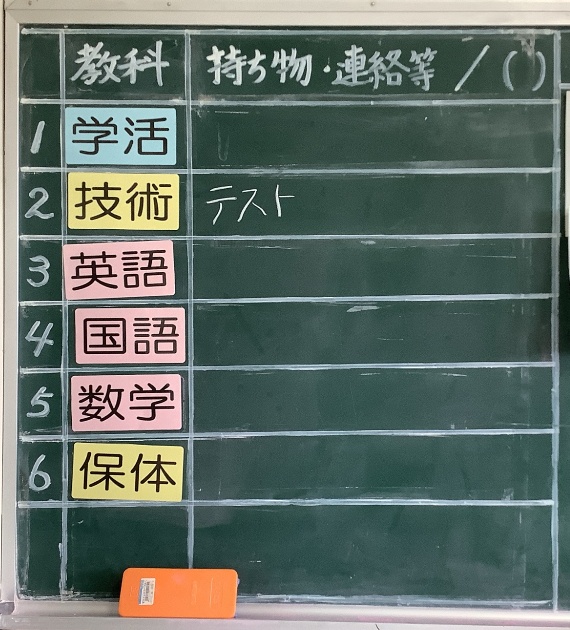 教科 持ち物・連絡等 / ( )
1 学活
2 技術 テスト
3 英語
4 国語
5 数学
6 保体